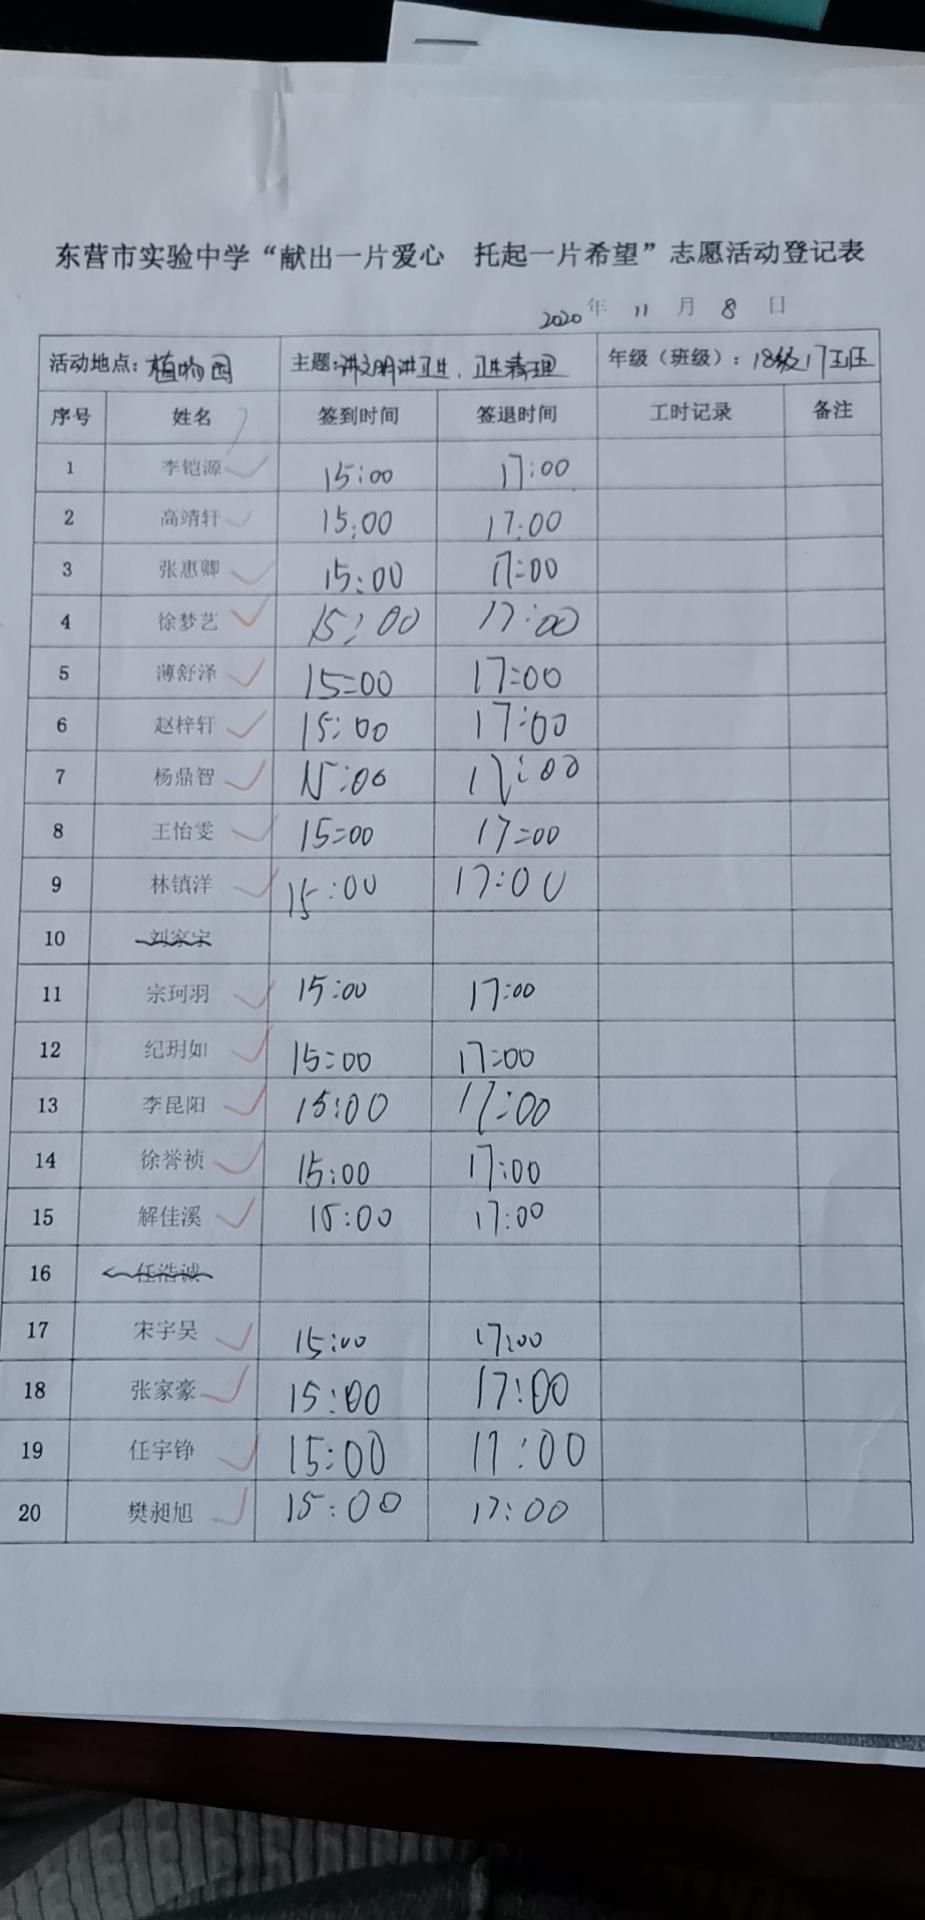 东营市实验中学“献出一片爱心 托起一片希望”志愿活动登记表
2020 年 11 月 8 日
活动地点：植物园 主题：讲文明讲卫生、卫生清理 年级（班级）：18级17班
序号 姓名 签到时间 签退时间 工时记录 备注
1 李铠源 15:00 17:00
2 高靖轩 15:00 17:00
3 张惠卿 15:00 17:00
4 徐梦艺 15:00 17:00
5 薄舒泽 15:00 17:00
6 赵梓轩 15:00 17:00
7 杨鼎智 15:00 17:00
8 王怡雯 15:00 17:00
9 林镇洋 15:00 17:00
10 刘家宋
11 宗珂羽 15:00 17:00
12 纪玥如 15:00 17:00
13 李昆阳 15:00 17:00
14 徐誉祯 15:00 17:00
15 解佳溪 15:00 17:00
16 任浩诚
17 宋宇昊 15:00 17:00
18 张家豪 15:00 17:00
19 任宇铮 15:00 17:00
20 樊昶旭 15:00 17:00